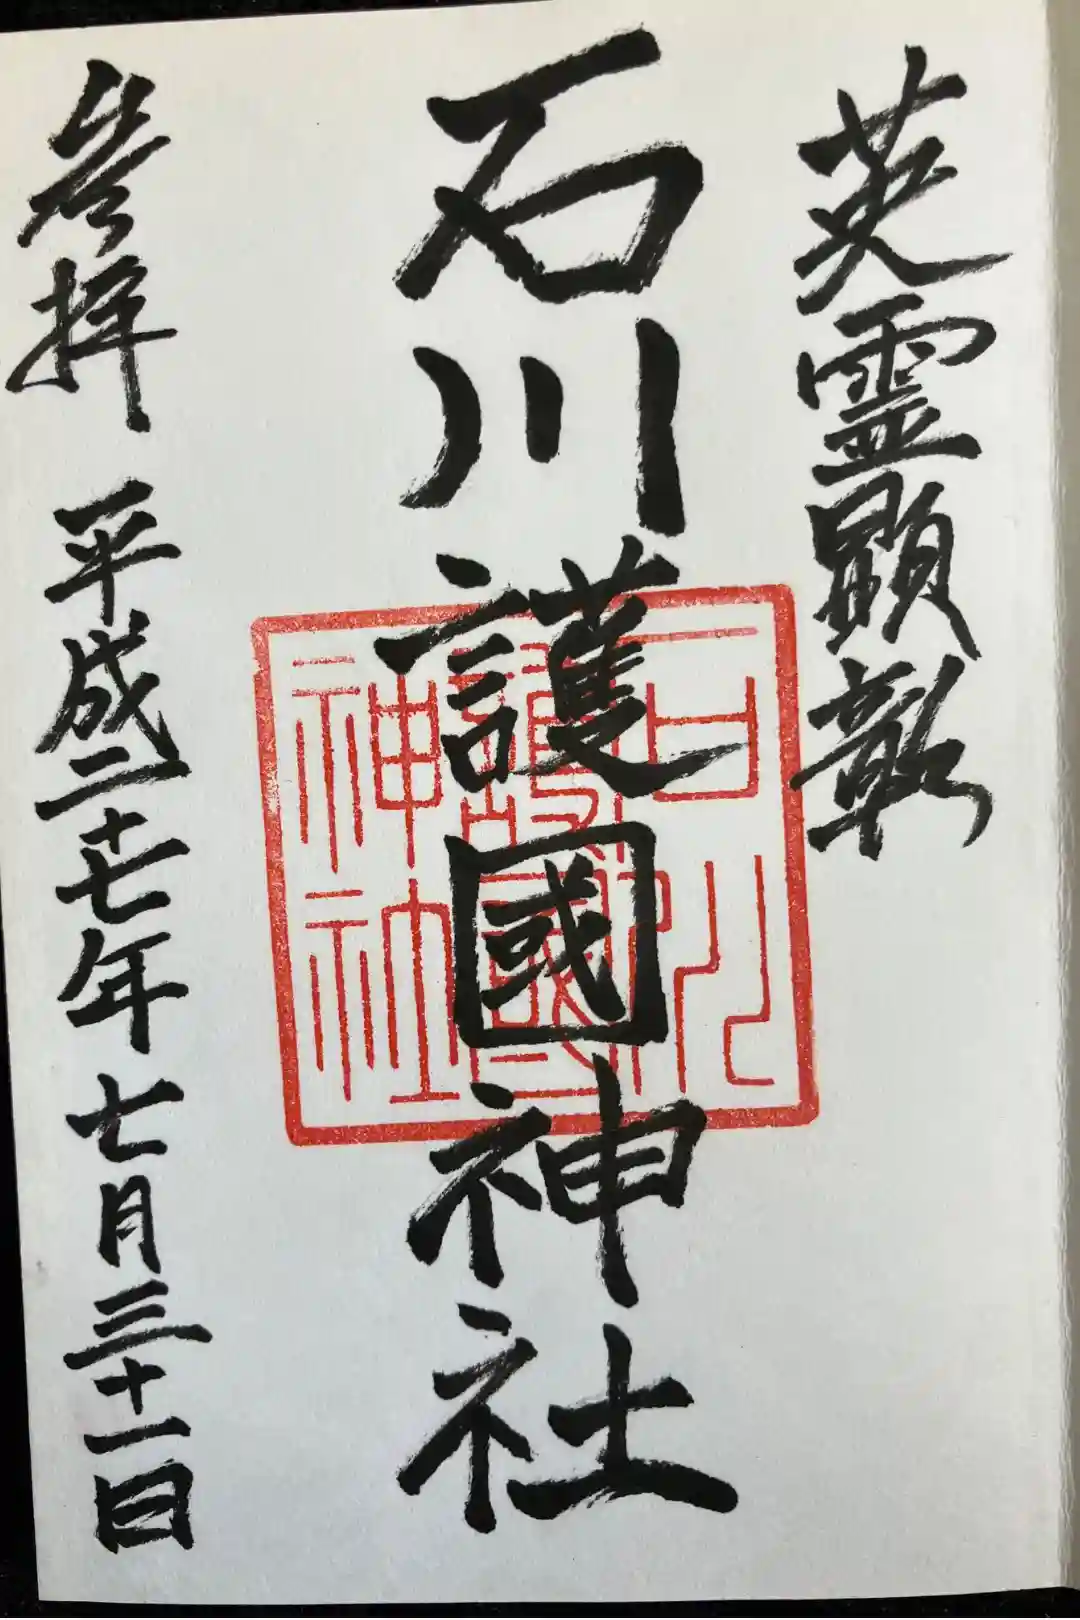 英霊顕彰
石川護國神社
石川護國神社
参拝 平成二十七年 七月三十一日